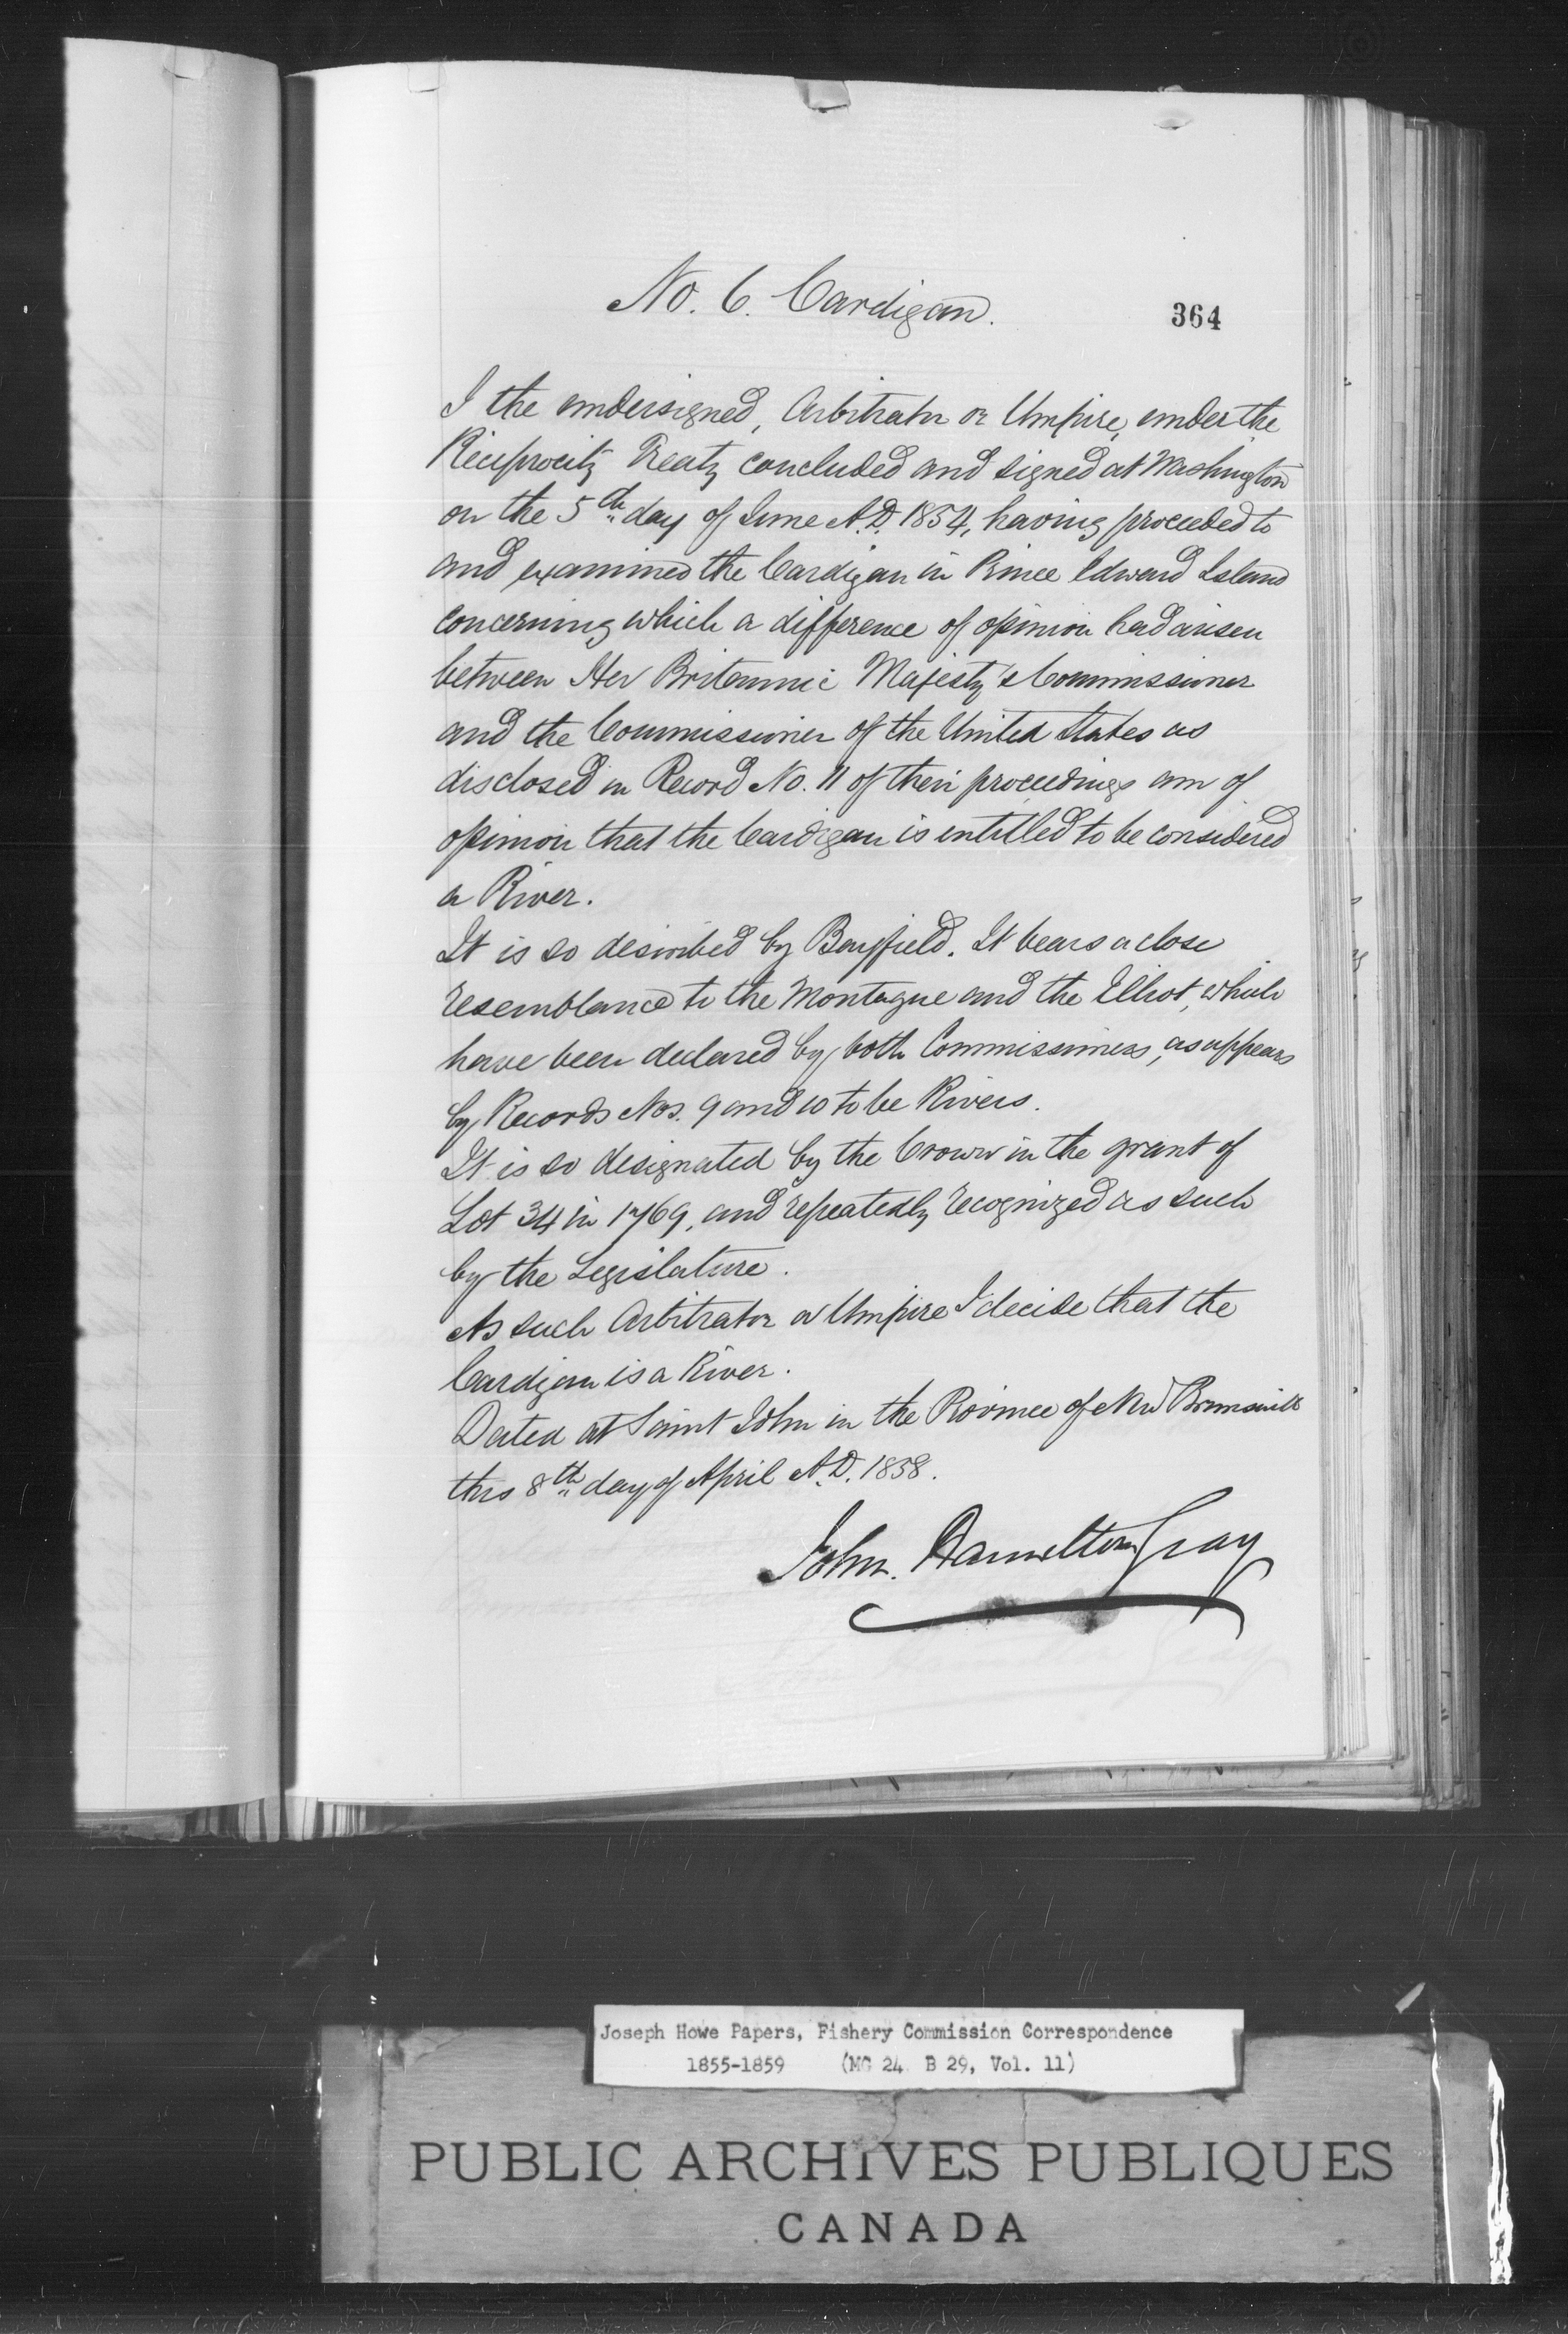 No. 6. Cardigan.
364
I the undersigned, Arbitrator or Umpire, under the
Reciprocity Treaty concluded and signed at Washington
on the 5th day of June A.D. 1854, having proceeded to
and examined the Cardigan in Prince Edward Island
concerning which a difference of opinion had arisen
between Her Britannic Majesty's Commissioner
and the Commissioner of the United States as
disclosed in Record No. 11 of their proceedings am of
opinion that the Cardigan is entitled to be considered
a River.
It is so described by Bayfield. It bears a close
resemblance to the Montague and the Elliot, which
have been declared by both Commissioners, as appears
by Records Nos. 9 and 10 to be Rivers.
It is so designated by the Crown in the grant of
Lot 34 in 1769, and repeatedly recognized as such
by the Legislature.
As such Arbitrator or Umpire I decide that the
Cardigan is a River.
Dated at Saint John in the Province of New Brunswick
this 8th day of April A.D. 1858.
John. Hamilton Gray
Joseph Howe Papers, Fishery Commission Correspondence
1855-1859 (MG 24 B 29, Vol. 11)
PUBLIC ARCHIVES PUBLIQUES
CANADA